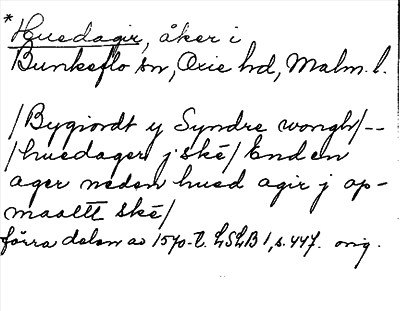 *Huedagir, åker i
Bunkeflo sn, Oxie hd, Malm. l.
/Bygiordt y Syndre wongh/--
/huedager j skē/ Enden
ager neden hued agir j op-
maaltt skē/
förra delen av 1570-t. LSLB 1, s. 447. orig.